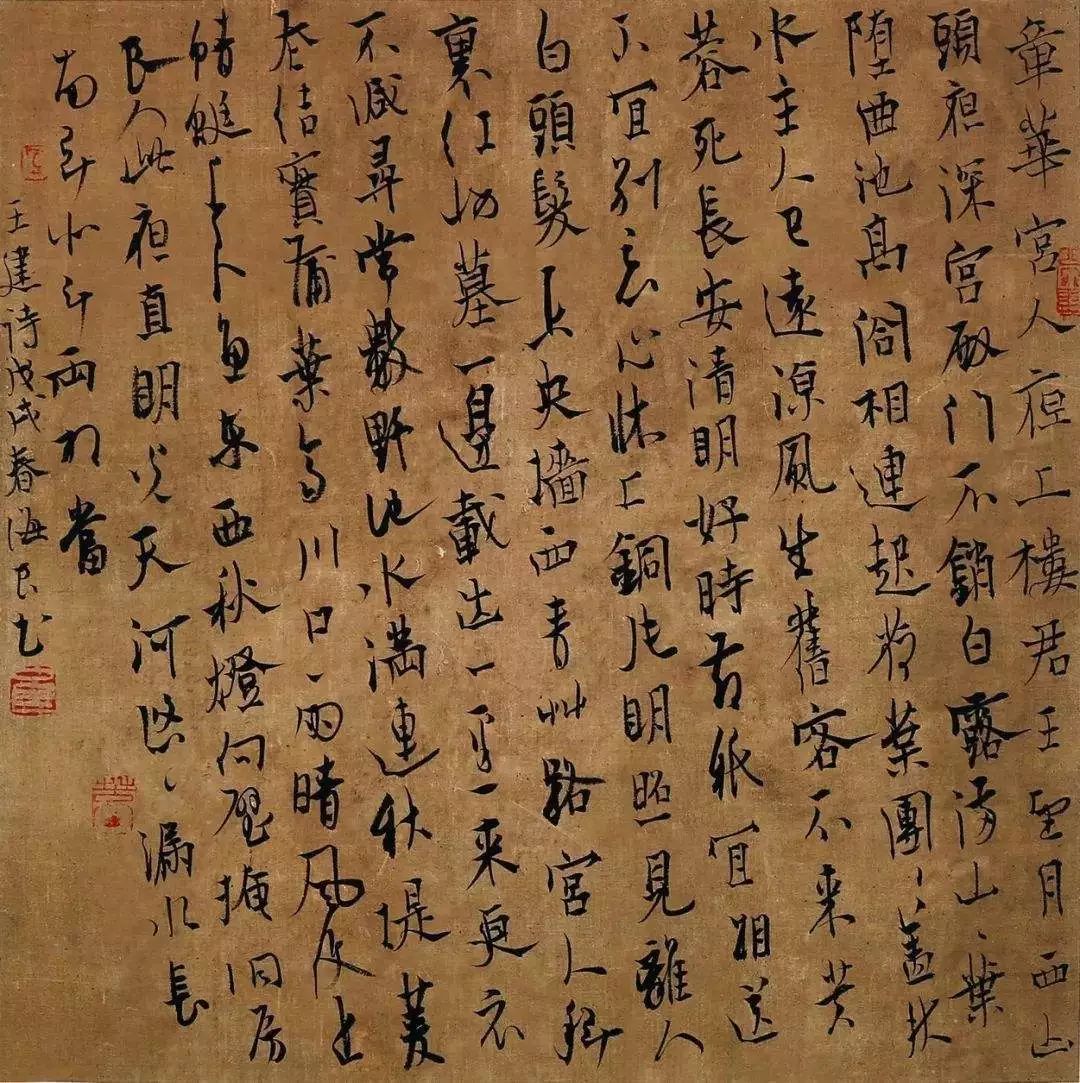 章華宮人夜上樓君王望月西山
頭夜深宮殿門不鎖白露滿山山葉
墮西池高閣相連起荷葉團團蓋秋
水主人已遠涼風生舊客不來芙
蓉死長安清明好時節祇宜相送
不宜別惡心床上銅片明照見離人
白頭髮未央墻西青草路宮人斜
裏紅妝墓一邊載出一邊來更衣
不減尋常數野池水滿連秋堤菱
花結實蒲葉齊川口雨晴風復止
蜻蜓上下魚東西秋燈向壁掩洞房
良人此夜直明光天河悠悠漏水長
南斗北斗兩相當
王建詩戊戌春海良書